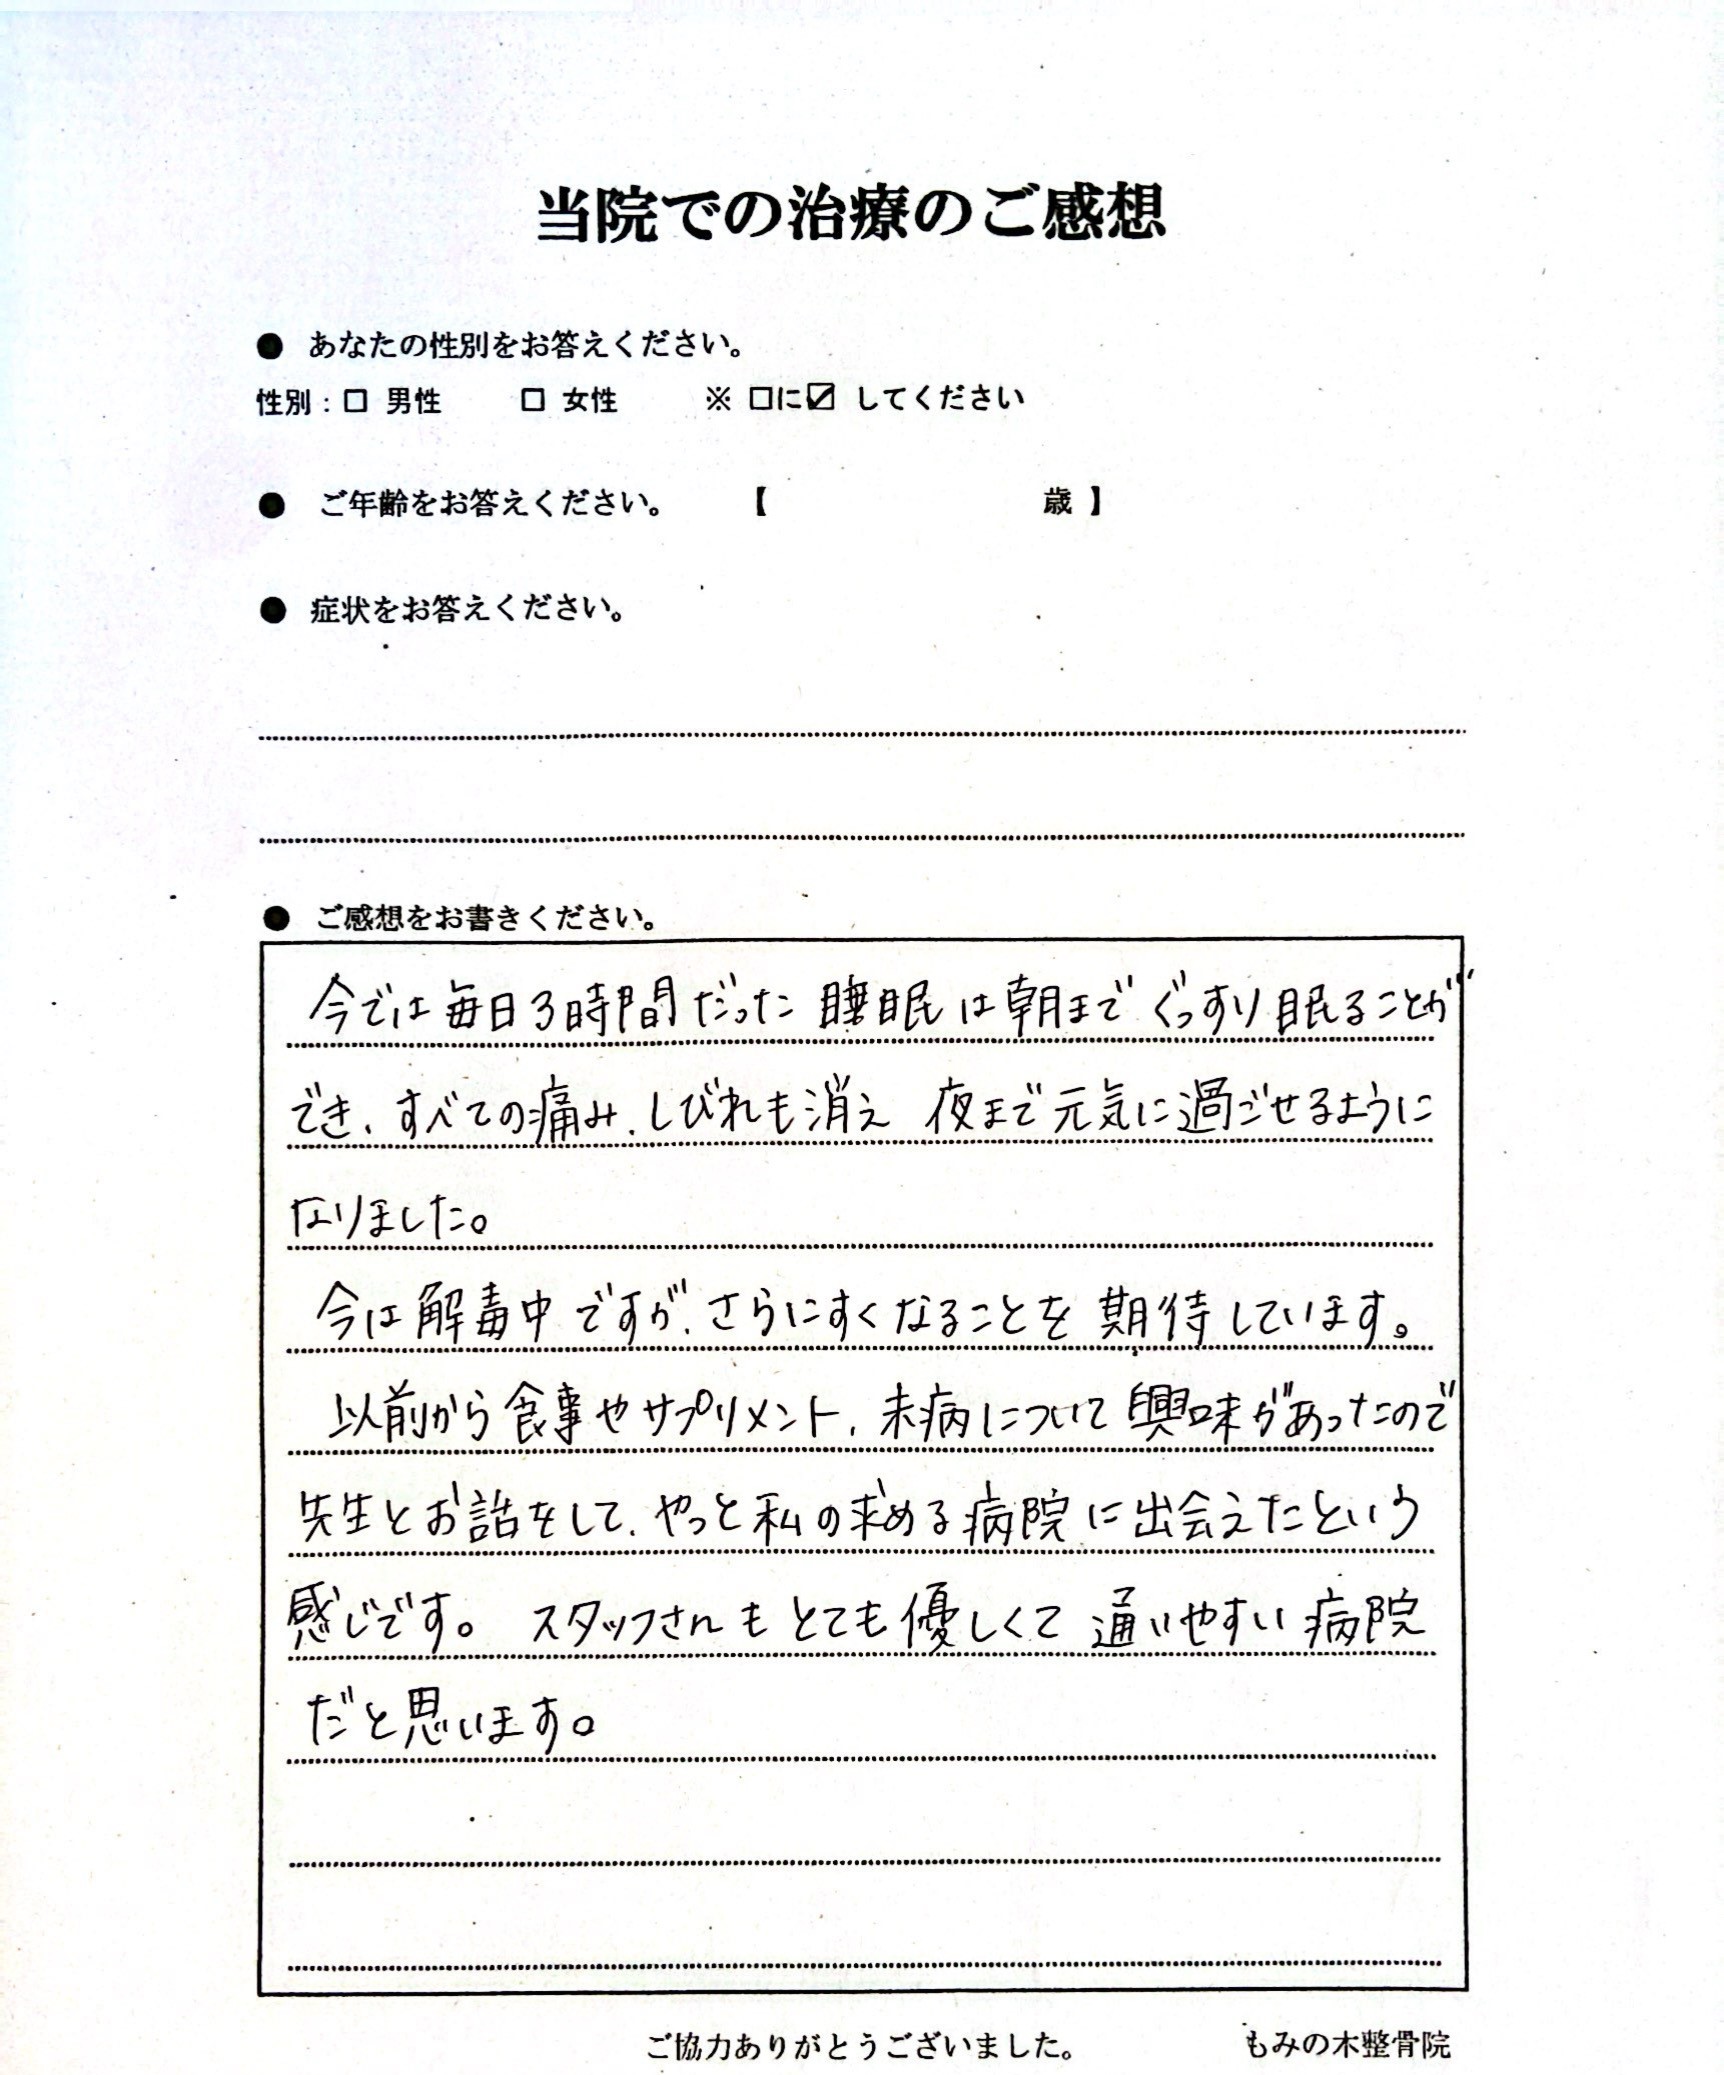 当院での治療のご感想
● あなたの性別をお答えください。
性別：□ 男性 □ 女性 ※ □に☑ してください
● ご年齢をお答えください。 【 歳 】
● 症状をお答えください。
● ご感想をお書きください。
今では毎日3時間だった睡眠は朝までぐっすり眠ることが
でき、すべての痛み、しびれも消え 夜まで元気に過ごせるように
なりました。
今は解毒中ですが、さらにすくなることを期待しています。
以前から食事やサプリメント、未病について興味があったので
先生とお話をして、やっと私の求める病院に出会えたという
感じです。 スタッフさんもとても優しくて 通いやすい病院
だと思います。
ご協力ありがとうございました。 もみの木整骨院